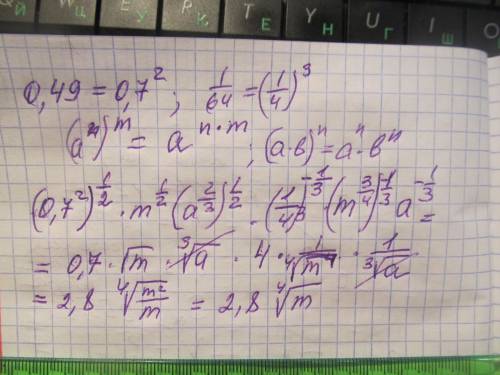 Й Ц W У E К R Е T Н Y Г U Ш I O
0,49 = 0,7² ; 1/64 = (1/4)³
(aⁿ)ᵐ = a^(n·m) ; (a·b)ⁿ = aⁿ·bⁿ
(0,7²)^(1/2) · m^(1/2) (a^(2/3))^(1/2) · ((1/4)³)^(-1/3) · (m^(3/4))^(-1/3) a^(-1/3) =
= 0,7 · √m · ∛a · 4 · 1/∜m · 1/∛a
= 2,8 ∜(m²/m) = 2,8 ∜m